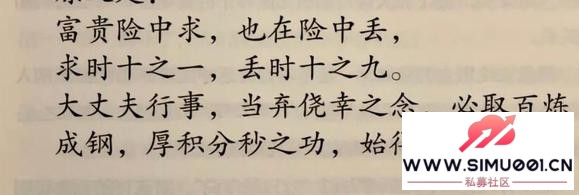 富贵险中求，也在险中丢，
求时十之一，丢时十之九。
大丈夫行事，当弃侥幸之念，必取百炼
成钢，厚积分秒之功，始
WWW.SIMU001.CN
私募社区